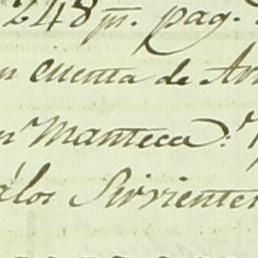 248 pr. pag.
en cuenta de
en Manteca:
álos Sirvientes